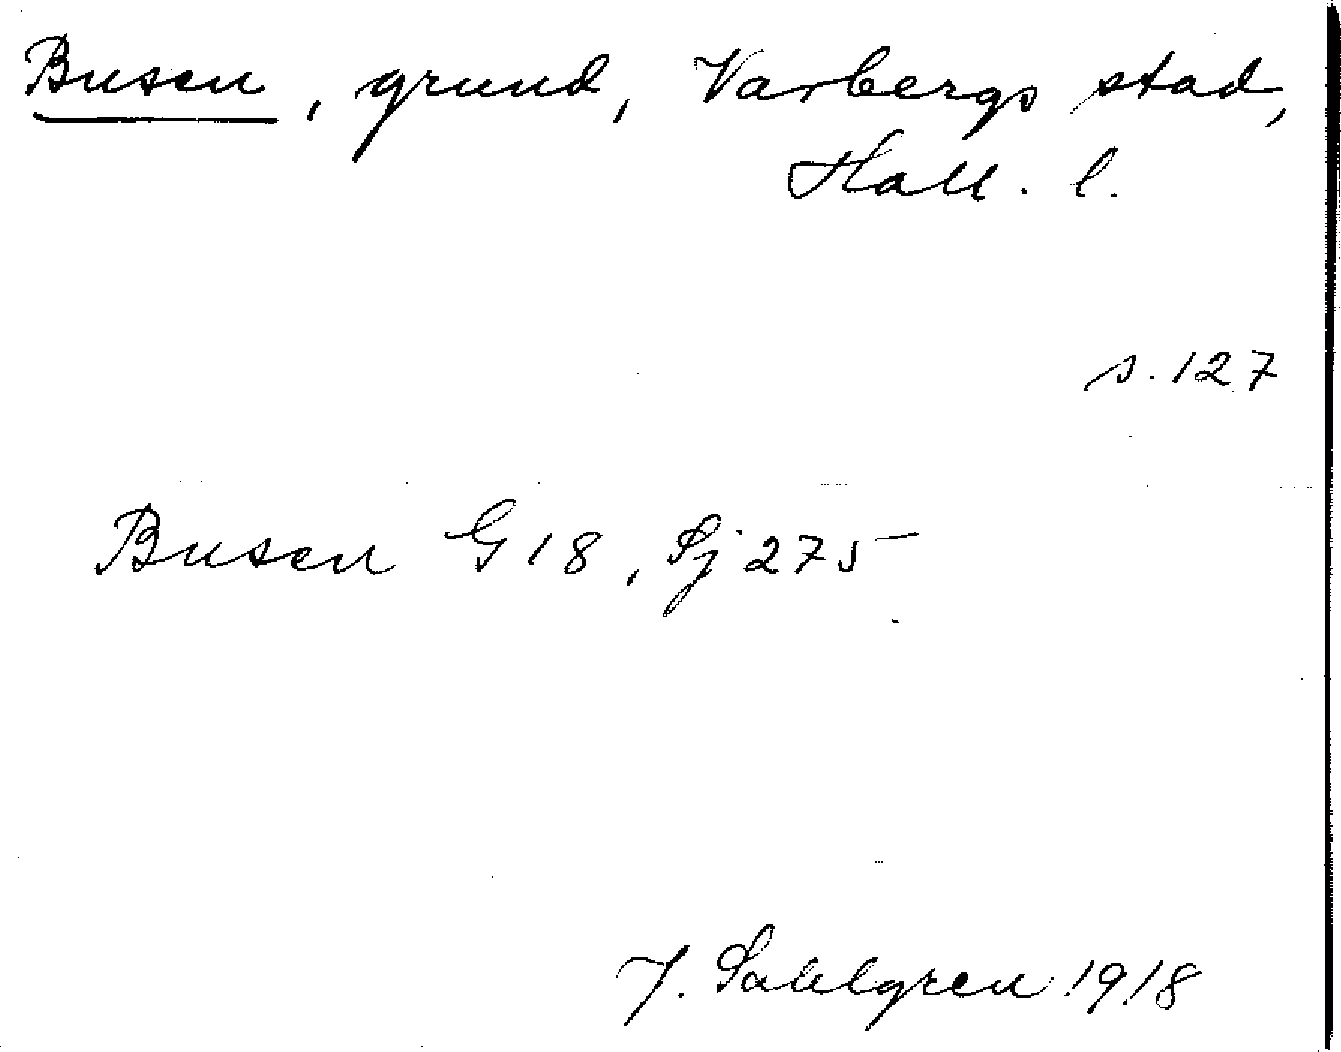 Busen, grund, Varbergs stad,
Hall. l.
s. 127
Busen G 18, Sj 275
J. Sahlgren 1918